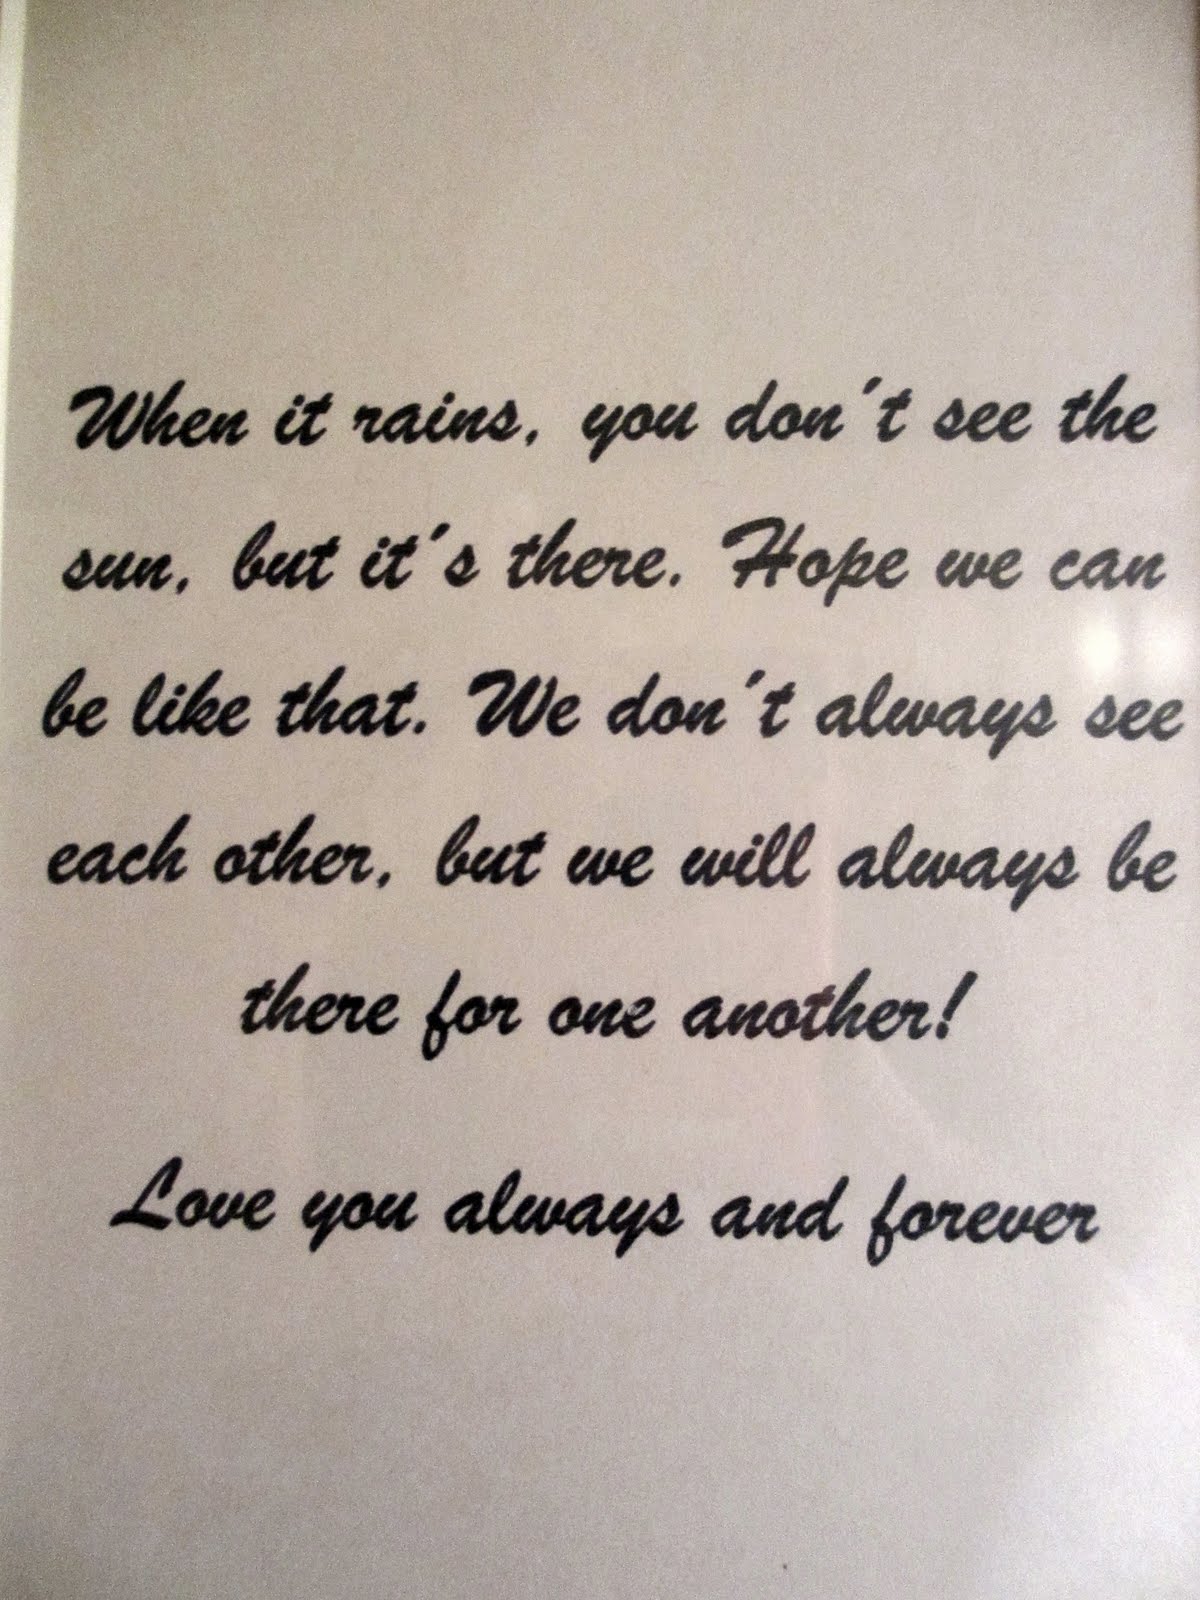 When it rains, you don´t see the
sun, but it´s there. Hope we can
be like that. We don´t always see
each other, but we will always be
there for one another!
Love you always and forever